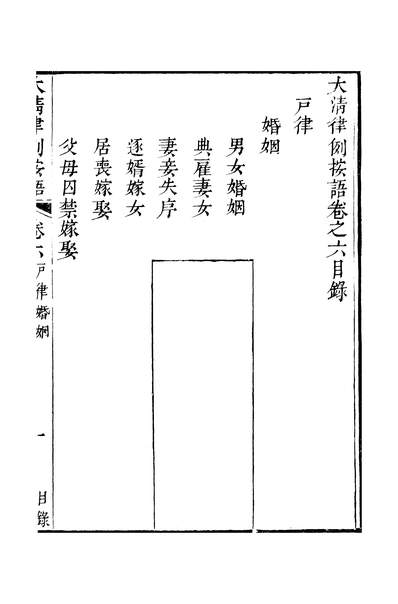 大清律例按語卷之六目錄
戸律
婚姻
男女婚姻
典雇妻女
妻妾失序
逐壻嫁女
居喪嫁娶
父母囚禁嫁娶
大清律例按語 卷六 戸律婚姻 一 目錄